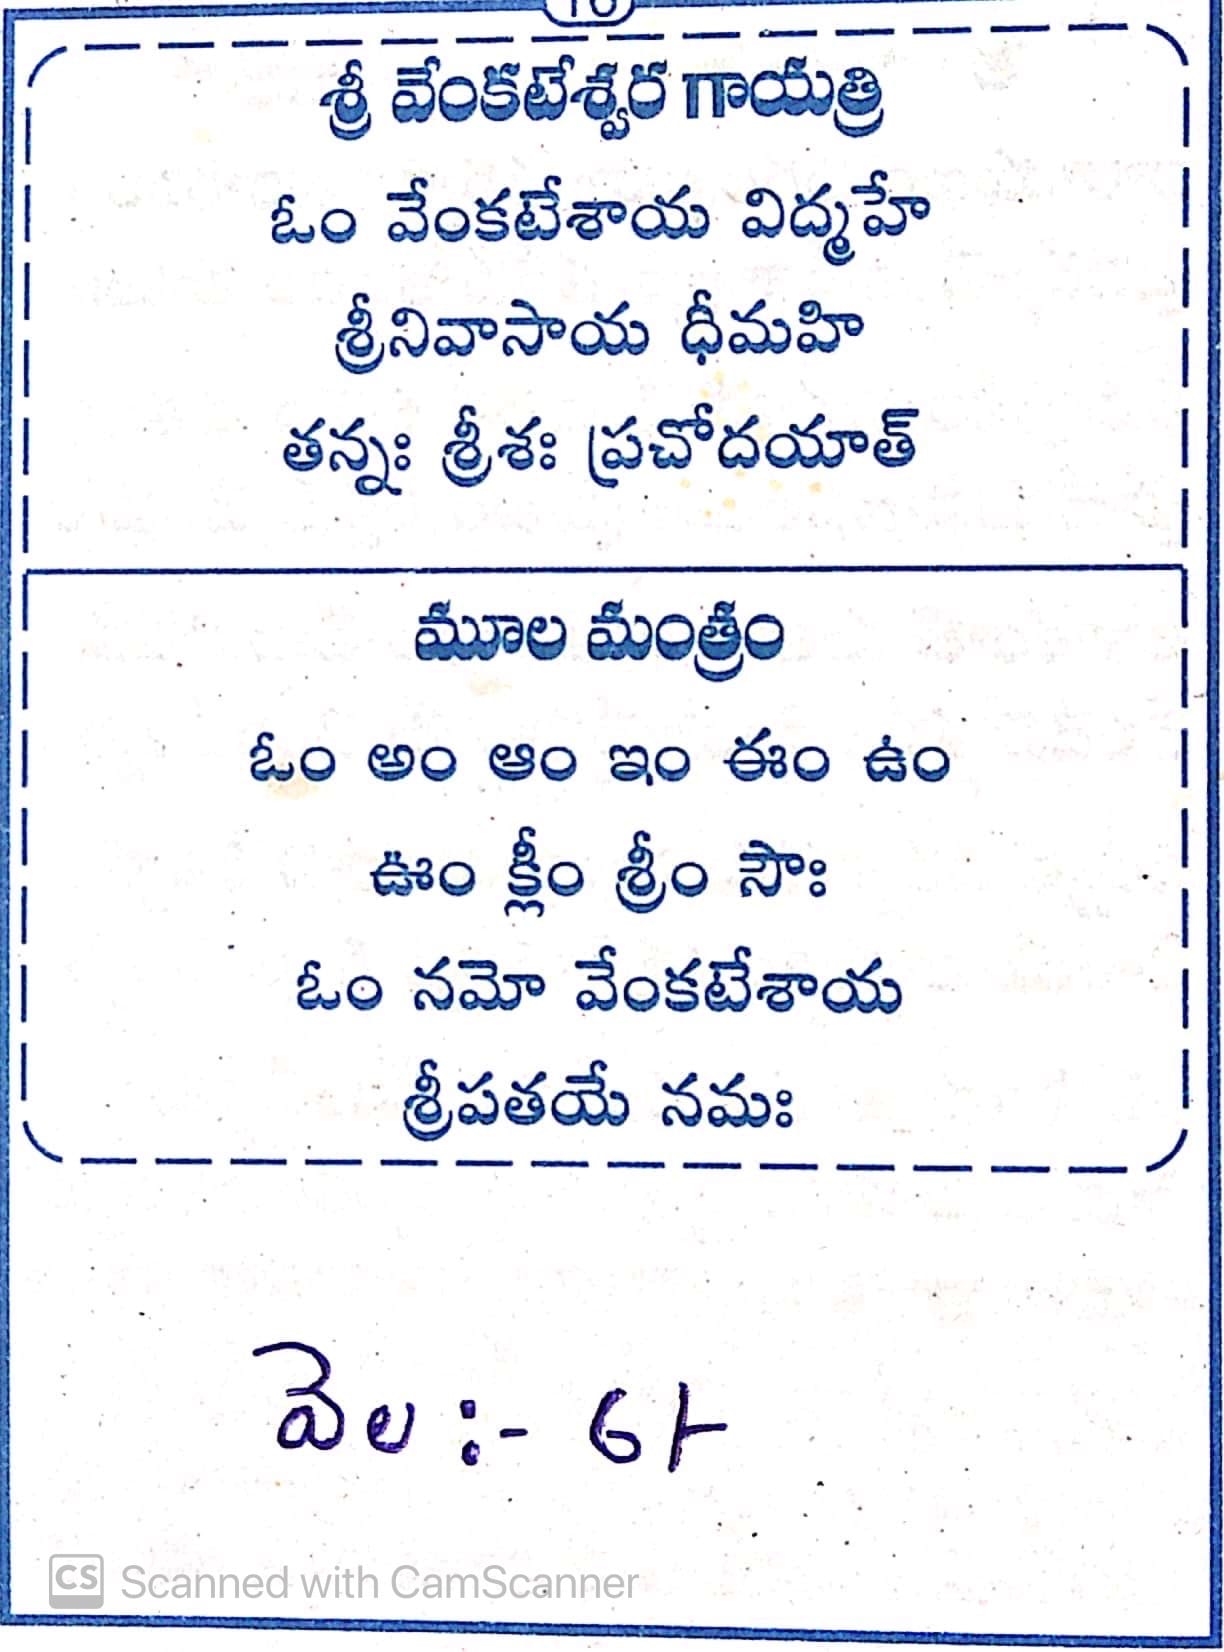 శ్రీ వేంకటేశ్వర గాయత్రి
ఓం వేంకటేశాయ విద్మహే
శ్రీనివాసాయ ధీమహి
తన్నః శ్రీశః ప్రచోదయాత్
మూల మంత్రం
ఓం అం ఆం ఇం ఈం ఉం
ఊం క్లీం శ్రీం సౌః
ఓం నమో వేంకటేశాయ
శ్రీపతయే నమః
వెల :- 6/-
CS Scanned with CamScanner